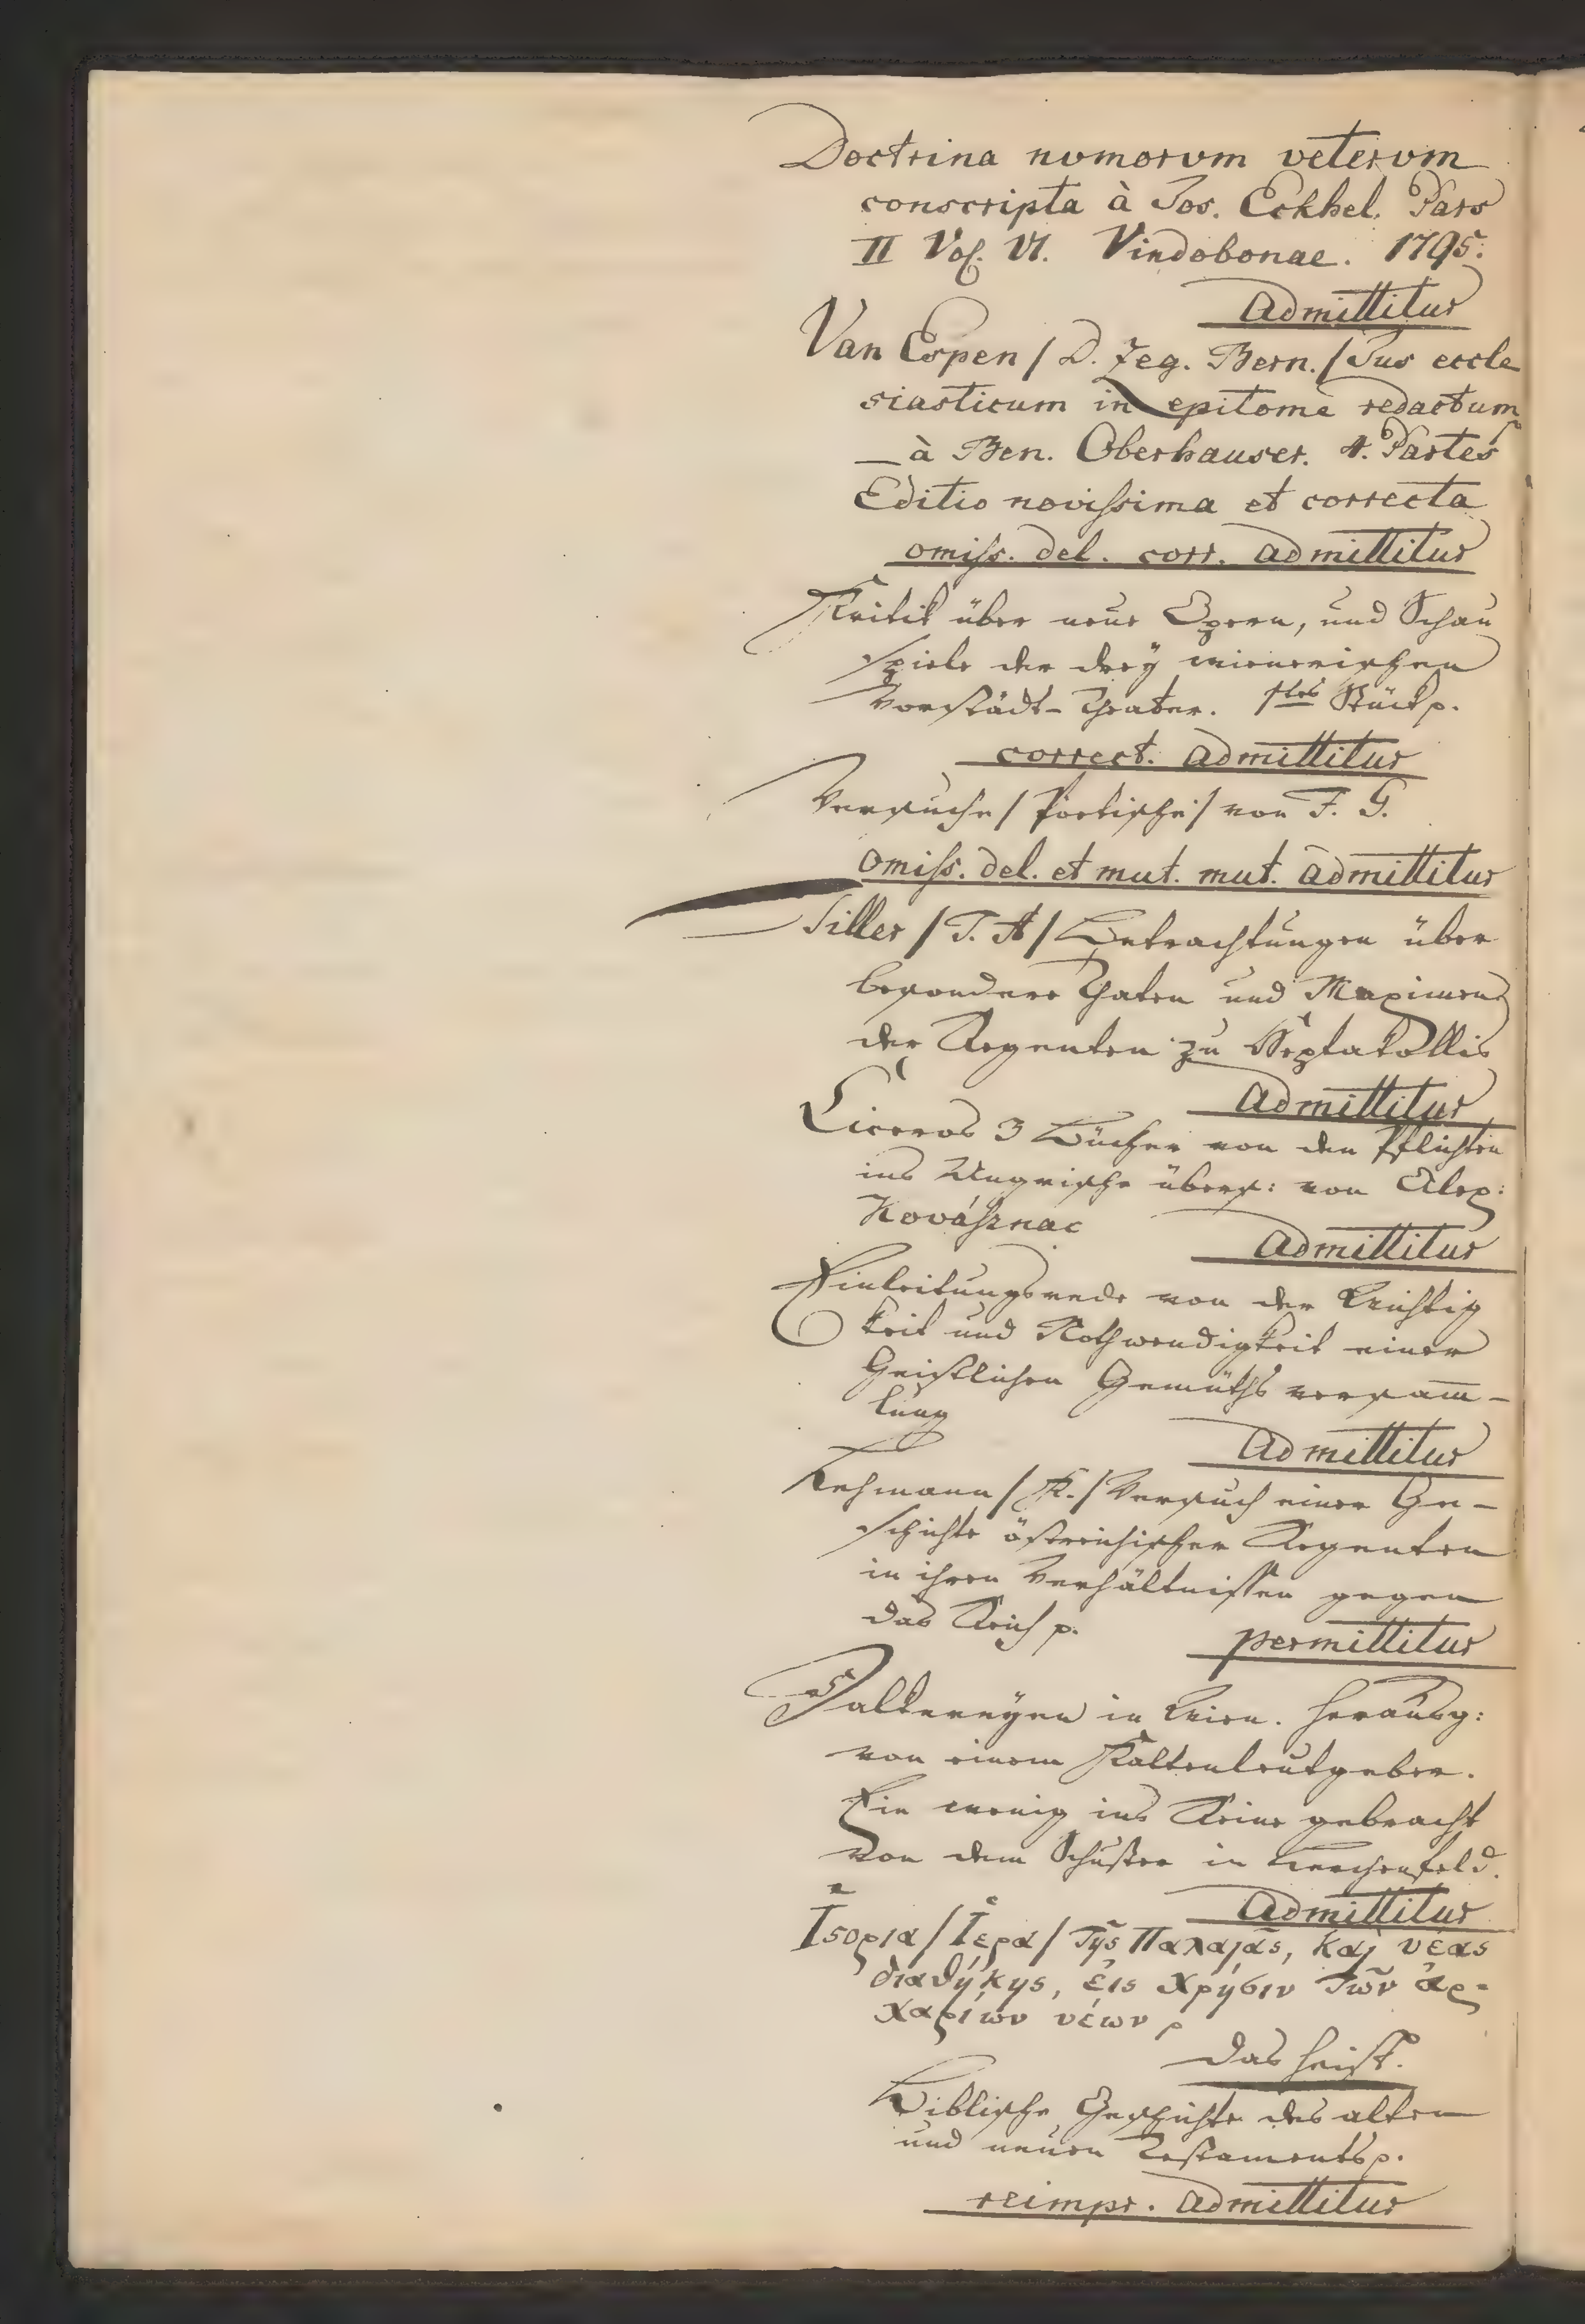 Doctrina numorum veterum
conscripta à Jos. Eckhel. Pars
II Vol. VI. Vindobonae. 1795.
Admittitur
Van Espen / D. Zeg. Bern. / Jus eccle
siasticum in epitome redactum
à Ben. Oberhauser. 4. Partes
Editio novissima et correcta
omiss. del. corr. admittitur
Kritik über neue Opern, und Schau
spiele der drey wienerischen
Vorstädt-Theater. 1tes Stück p.
correct. admittitur
Versuche / Poetische / von F. G.
omiss. del. et mut. mut. admittitur
Siller / J. A / Betrachtungen über
besondere Thaten und Maximen
der Regenten zu Septakollis
Admittitur
Ciceros 3 Bücher von den Pflichten
ins Ungrische übers: von Alex:
Kovásznac
Admittitur
Einleitungsrede von der Wichtig
keit und Nothwendigkeit einer
Geistlichen Gemüths versam̄-
lung
Admittitur
Lehmann / K. / Versuch einer Ge-
schichte östreichischer Regenten
in ihren Verhältnissen gegen
das Reich p.
permittitur
Falkereyen in Wien. Herausg:
von einem Kaltenleutgeber.
Ein wenig ins Reine gebracht
von dem Schuster in Lerchenfeld.
Admittitur
Ἱϛορια / Ἱερα / Τῆς Παλαιᾶς, καὶ νέας
διαθήκης, ἐις χρῆσιν τῶν ἀρ-
χαρίων νέων p
das heist.
Biblische Geschichte des alten
und neuen Testaments p.
reimpr. admittitur